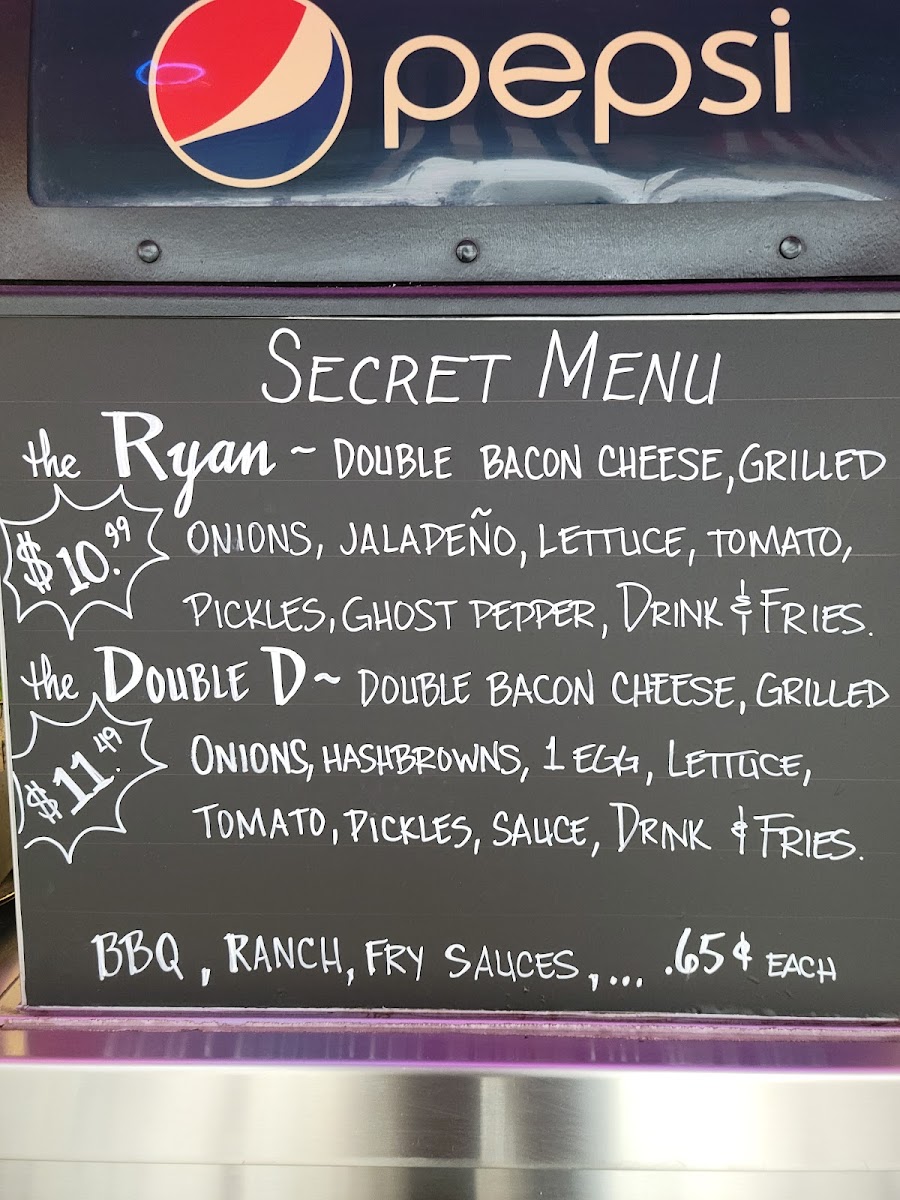 pepsi
SECRET MENU
the Ryan ~ DOUBLE BACON CHEESE, GRILLED
$10.99
ONIONS, JALAPEÑO, LETTUCE, TOMATO,
PICKLES, GHOST PEPPER, DRINK & FRIES.
the DOUBLE D ~ DOUBLE BACON CHEESE, GRILLED
$11.49
ONIONS, HASHBROWNS, 1 EGG, LETTUCE,
TOMATO, PICKLES, SAUCE, DRINK & FRIES.
BBQ, RANCH, FRY SAUCES,... .65¢ EACH